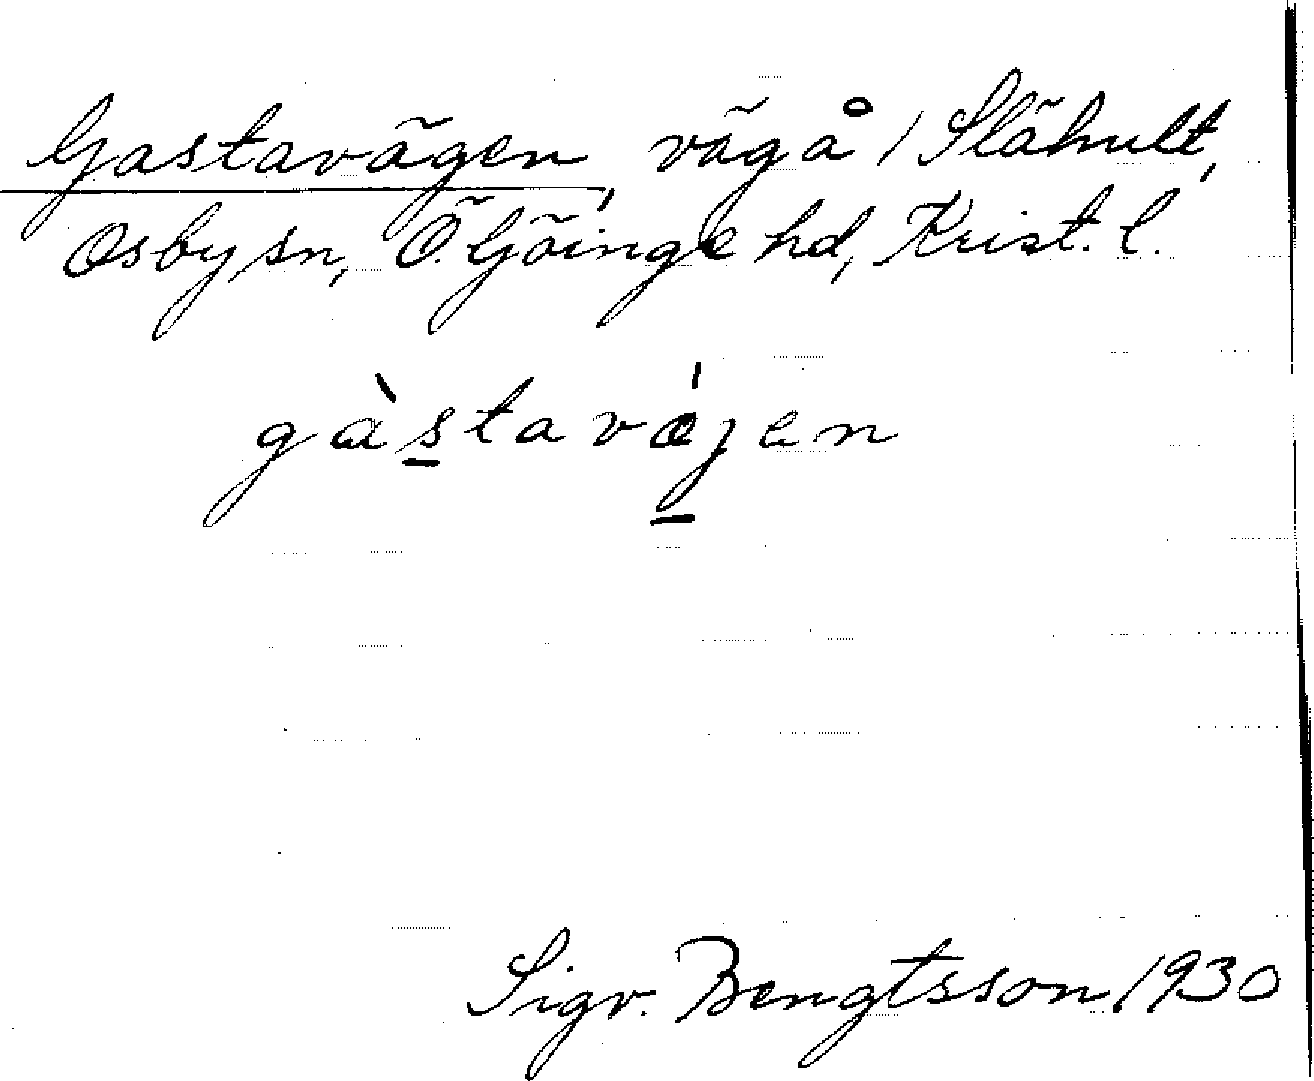 Gastavägen, väg å / Slähult,
Osby sn, Ö. Göinge hd, Krist. l.
gàstavǽjen
Sigv. Bengtsson 1930